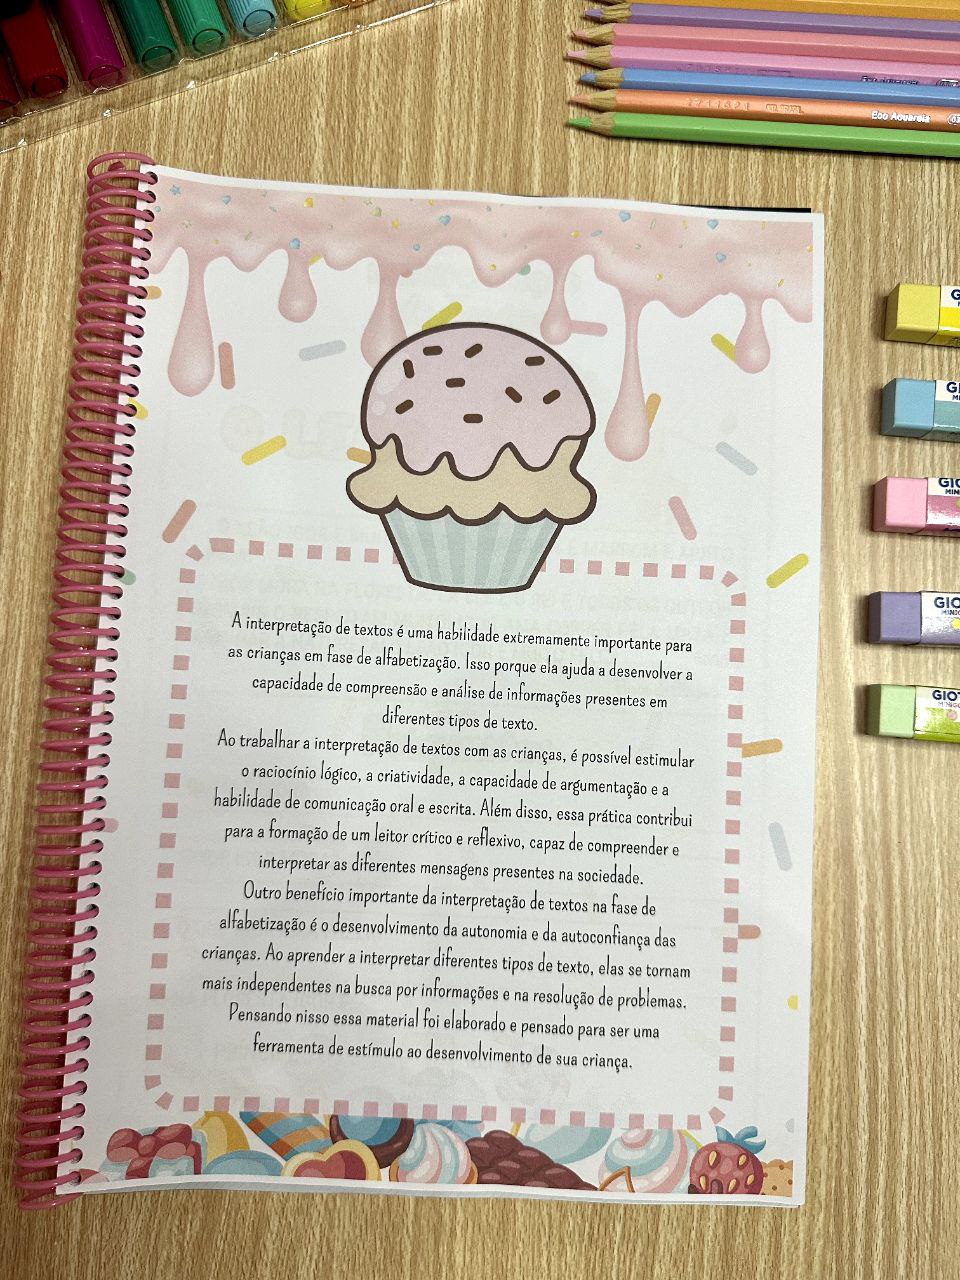 Eco Aquarela
GIO
MIN
GIO
MI
GIO
MINI
GIO
MIN
GIOT
MINIGO
A interpretação de textos é uma habilidade extremamente importante para
as crianças em fase de alfabetização. Isso porque ela ajuda a desenvolver a
capacidade de compreensão e análise de informações presentes em
diferentes tipos de texto.
Ao trabalhar a interpretação de textos com as crianças, é possível estimular
o raciocínio lógico, a criatividade, a capacidade de argumentação e a
habilidade de comunicação oral e escrita. Além disso, essa prática contribui
para a formação de um leitor crítico e reflexivo, capaz de compreender e
interpretar as diferentes mensagens presentes na sociedade.
Outro benefício importante da interpretação de textos na fase de
alfabetização é o desenvolvimento da autonomia e da autoconfiança das
crianças. Ao aprender a interpretar diferentes tipos de texto, elas se tornam
mais independentes na busca por informações e na resolução de problemas.
Pensando nisso essa material foi elaborado e pensado para ser uma
ferramenta de estímulo ao desenvolvimento de sua criança.